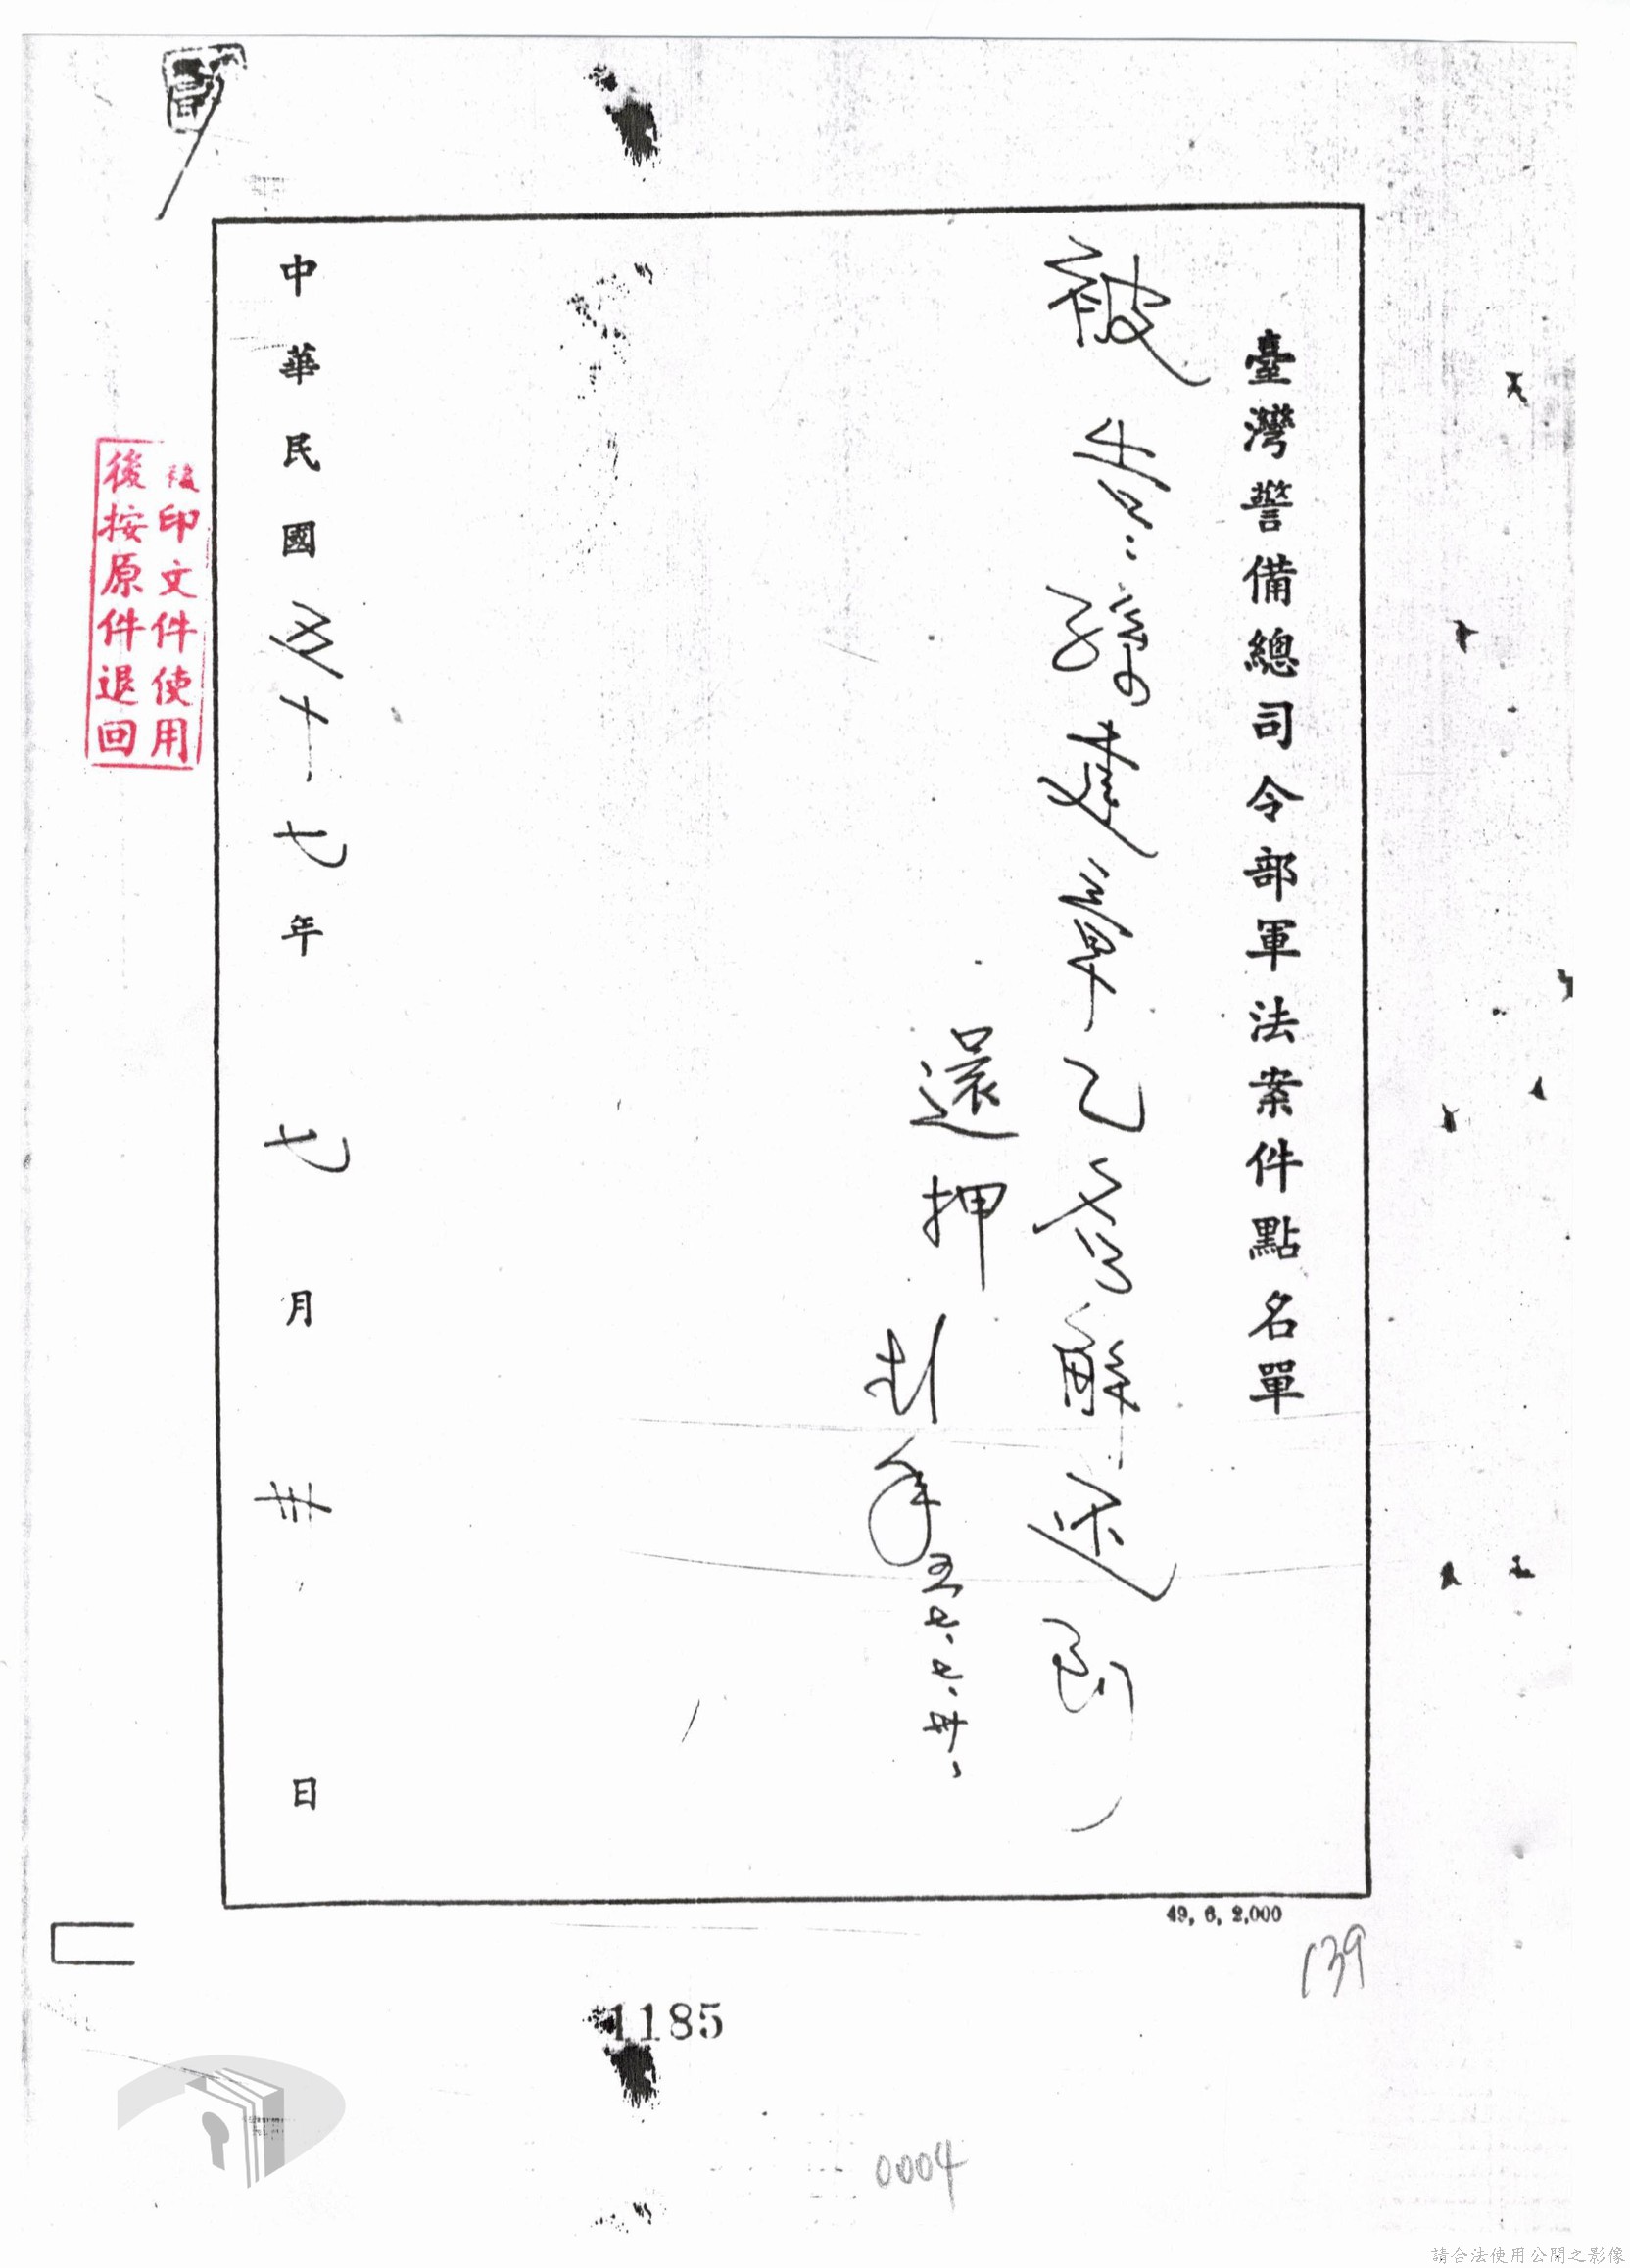 臺灣警備總司令部軍法案件點名單
被告：孫建章乙名解送到
還押
五七、七、卅、
中華民國五十七年七月卅日
複印文件使用
後按原件退回
49, 6, 2,000
139
1185
0004
請合法使用公開之影像